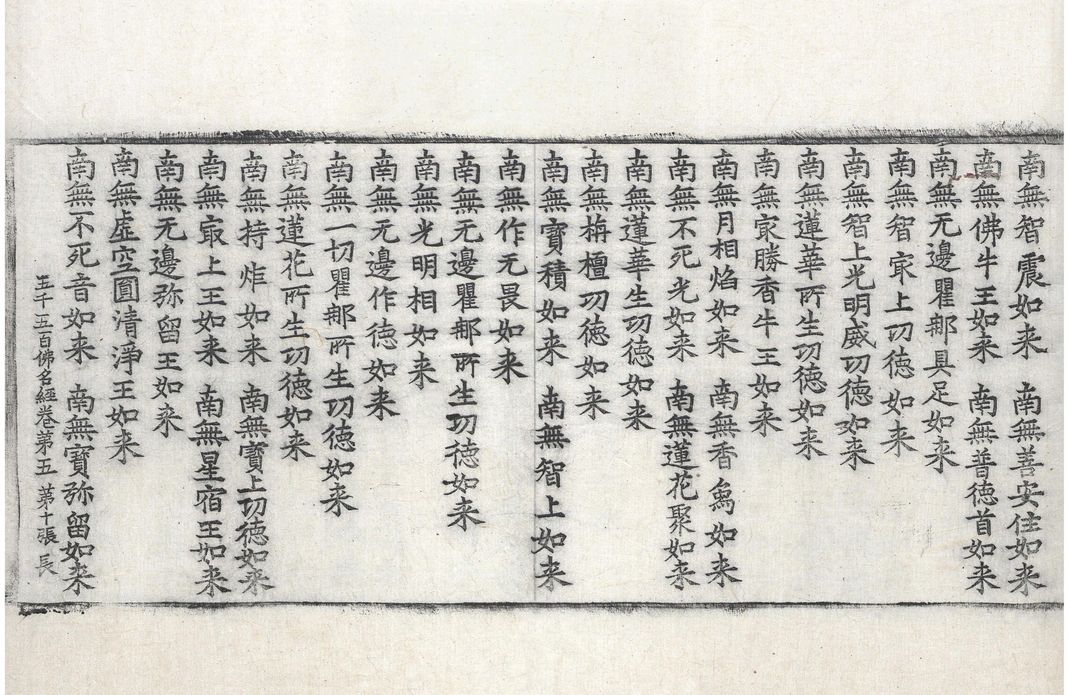 南無智震如来　南無善安住如来
南無佛牛王如来　南無普德首如来
南無无邊瞿郍具足如来
南無智㝡上功德如来
南無智上光明威功德如来
南無蓮華所生功德如来
南無㝡勝香牛王如来
南無月相焰如来　南無香為如来
南無不死光如来　南無蓮花聚如来
南無蓮華生功德如来
南無栴檀功德如来
南無寶積如来　南無智上如来
南無作无畏如来
南無无邊瞿郍所生功德如来
南無光明相如来
南無无邊作德如来
南無一切瞿郍所生功德如来
南無蓮花所生功德如来
南無持炬如来　南無寶上功德如来
南無㝡上王如来　南無星宿王如来
南無无邊弥留王如来
南無虛空圓清淨王如来
南無不死音如来　南無寶弥留如来
五千五百佛名經卷第五　第十張　長